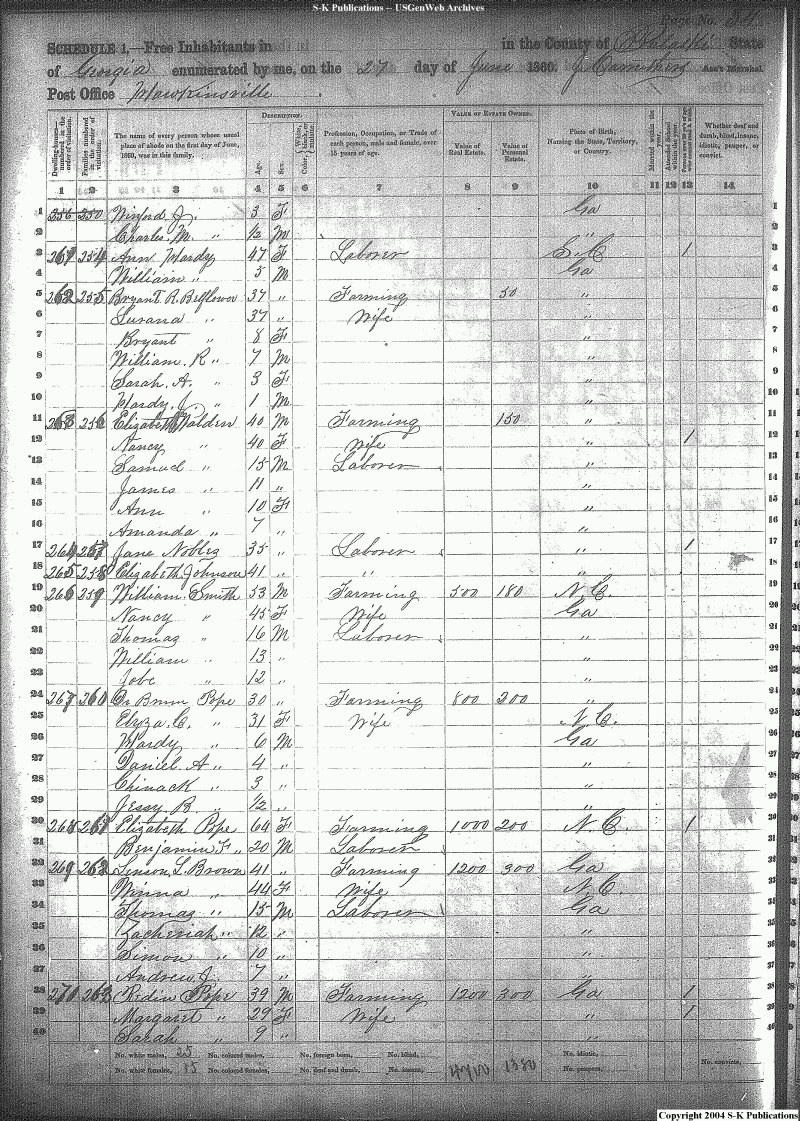 S-K Publications – USGenWeb Archives
Page No. 34
SCHEDULE 1.—Free Inhabitants in in the County of Pulaski State
of Georgia enumerated by me, on the 27 day of June 1860. J. Carruthers Ass't Marshal.
Post Office Hawkinsville
Dwelling-houses numbered in the order of visitation. Families numbered in the order of visitation. The name of every person whose usual place of abode on the first day of June, 1860, was in this family. DESCRIPTION. Age. Sex. Color, White, black, or mulatto. Profession, Occupation, or Trade of each person, male and female, over 15 years of age. VALUE OF ESTATE OWNED. Value of Real Estate. Value of Personal Estate. Place of Birth, Naming the State, Territory, or Country. Married within the year. Attended School within the year. Whether deaf and dumb, blind, insane, idiotic, pauper, or convict.
1 2 3 4 5 6 7 8 9 10 11 12 13 14
1 Winford J. 3 F Ga 1
2 Charles M. " ½ M " 2
3 261 254 Ann Hardy 47 F Laborer S. C 1 3
4 William " 5 M Ga 4
5 262 255 Bryant R. Belflower 37 " Farming 50 " 5
6 Lurana " 37 " Wife " 6
7 Bryant " 8 F " 7
8 William R " 7 M " 8
9 Sarah A. " 3 F " 9
10 Hardy J. " 1 M " 10
11 263 256 Elizabeth Walden 40 M Farming 150 " 11
12 Nancy " 40 F Wife " 1 12
13 Samuel " 15 M Laborer " 13
14 James " 11 " " 14
15 Ann " 10 F " 15
16 Amanda " 7 " " 16
17 264 257 Jane Nobles 35 " Laborer " 1 17
18 265 258 Elizabeth Johnson 41 " " " 18
19 266 259 William Smith 53 M Farming 500 180 N. C 19
20 Nancy " 45 F Wife Ga 20
21 Thomas " 16 M Laborer " 21
22 William " 13 " " 22
23 Jobe " 12 " " 23
24 267 260 Pope 30 " Farming 800 200 " 24
25 Eliza C. " 31 F Wife N. C. 25
26 Hardy " 6 M Ga 26
27 Daniel A " 4 " " 27
28 Chinack " 3 " " 28
29 Jessy B. " ½ " " 29
30 268 261 Elizabeth Pope 64 F Farming 1000 200 N. C. 1 30
31 Benjamin F. " 20 M Laborer 31
32 269 262 Simson L. Brown 41 " Farming 1200 300 Ga 32
33 Winna " 44 F Wife N. C. 33
34 Thomas " 15 M Laborer Ga 34
35 Zacheriah " 12 " " 35
36 Simon " 10 " " 36
37 Andrew J. 7 " " 37
38 270 263 Redin Pope 39 M Farming 1200 300 Ga 1 38
39 Margaret " 29 F Wife " 1 39
40 Sarah " 9 " " 40
No. white males, 25 No. colored males, No. foreign born, No. blind, No. idiotic,
No. white females, 15 No. colored females, No. deaf and dumb, No. insane, 4700 1380 No. paupers, No. convicts,
Copyright 2004 S-K Publications